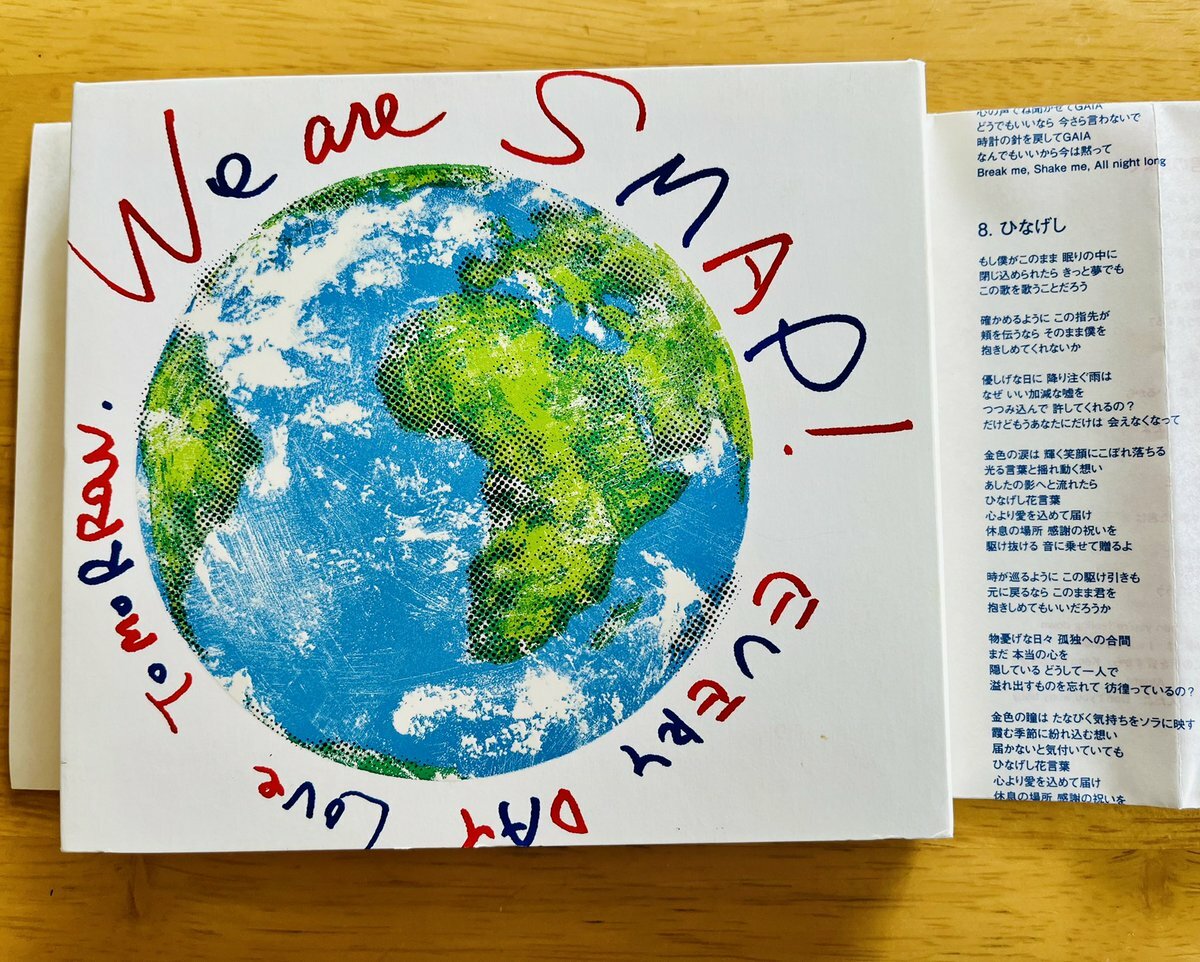 We are SMAP!
EVERY DAY LOVE TOMORROW.
心の声でね聞かせてGAIA
どうでもいいなら 今さら言わないで
時計の針を戻してGAIA
なんでもいいから今は黙って
Break me, Shake me, All night long
8. ひなげし
もし僕がこのまま 眠りの中に
閉じ込められたら きっと夢でも
この歌を歌うことだろう
確かめるように この指先が
頬を伝うなら そのまま僕を
抱きしめてくれないか
優しげな日に 降り注ぐ雨は
なぜ いい加減な嘘を
つつみ込んで 許してくれるの?
だけどもうあなたにだけは 会えなくなって
金色の涙は 輝く笑顔にこぼれ落ちる
光る言葉と揺れ動く想い
あしたの影へと流れたら
ひなげし花言葉
心より愛を込めて届け
休息の場所 感謝の祝いを
駆け抜ける 音に乗せて贈るよ
時が巡るように この駆け引きも
元に戻るなら このまま君を
抱きしめてもいいだろうか
物憂げな日々 孤独への合間
まだ 本当の心を
隠している どうして一人で
溢れ出すものを忘れて 彷徨っているの?
金色の瞳は たなびく気持ちをソラに映す
霞む季節に紛れ込む想い
届かないと気付いていても
ひなげし花言葉
心より愛を込めて届け
休息の場所 感謝の祝いを